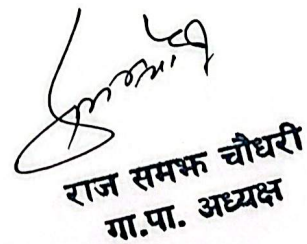 राज समझ चौधरी
गा.पा. अध्यक्ष